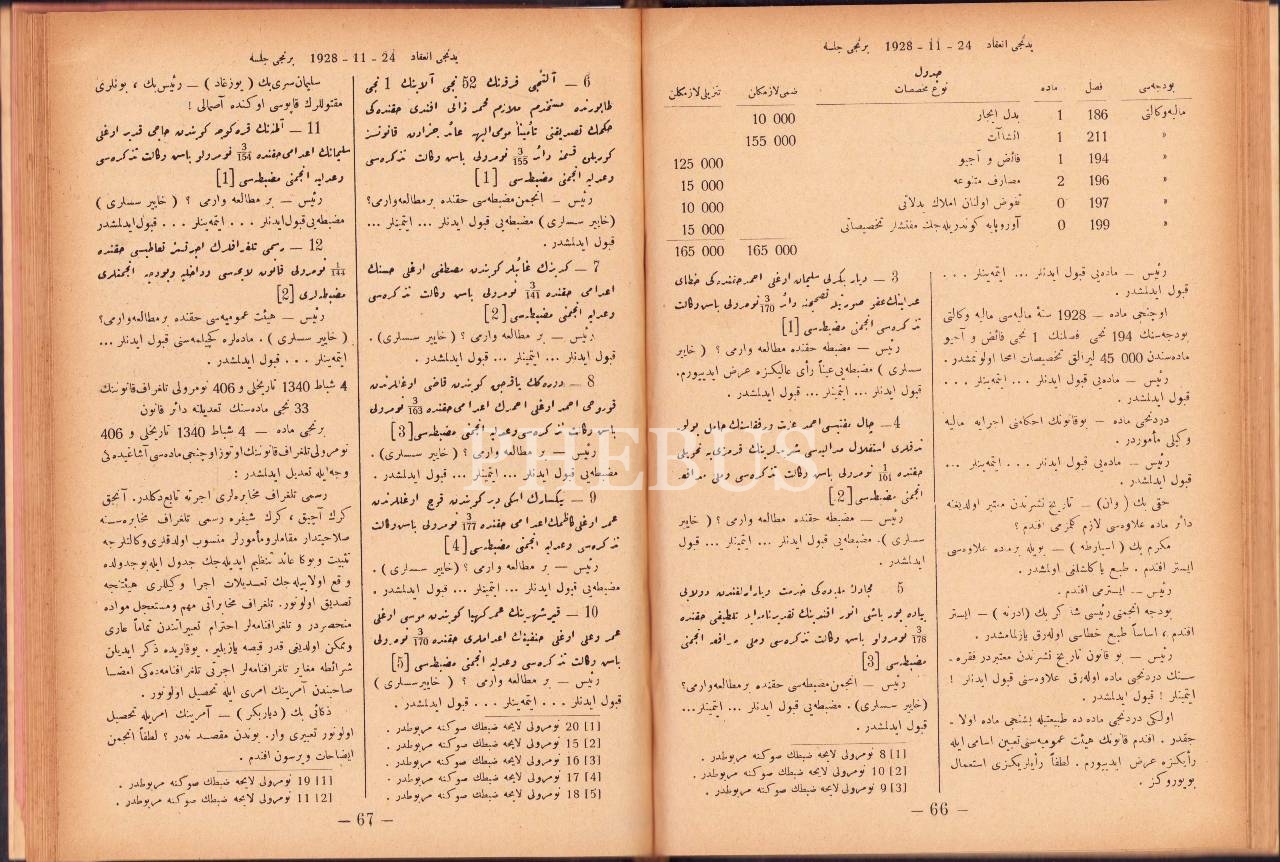 يدنجی انعقاد 24 - 11 - 1928 برنجی جلسه
جدول
بودجه‌سی فصل ماده نوع مخصصات ضمی لازمكلن تنزیلی لازمكلن
مالیه وكالتی 186 1 بدل ایجار 10 000
» 211 1 انشاآت 155 000
» 194 1 فائض و آجیو 125 000
» 196 2 مصارف متنوعه 15 000
» 197 0 تفوض اولنان املاك بدلاتی 10 000
» 199 0 آوروپایه كوندریله‌جك مفتشلر تخصیصاتی 15 000
165 000 165 000
رئیس — ماده‌یی قبول ایدنلر ... ایتمه‌ینلر . . .
قبول ایدلمشدر .
اوچنجی ماده — 1928 سنهٔ مالیه‌سی مالیه وكالتی
بودجه‌سنك 194 نجی فصلنك 1 نجی فائض و آجیو
ماده‌سندن 45 000 لیرالق تخصیصات امحا اولونمشدر .
رئیس — ماده‌یی قبول ایدنلر ... ایتمه‌ینلر . . .
قبول ایدلمشدر .
دردنجی ماده — بوقانونك احكامنی اجرایه مالیه
وكیلی مأموردر .
رئیس — ماده‌یی قبول ایدنلر . . . ایتمه‌ینلر ...
قبول ایدلمشدر .
حقی بك ( وان ) — تاریخ نشرندن معتبر اولدیغنه
دائر ماده علاوه‌سی لازم كلمزمی افندم ؟
مكرم بك ( اسپارطه ) — بویله برماده علاوه‌سی
ایستر افندم . طبع یاكلشلغی اولمشدر .
رئیس — ایسترمی افندم .
بودجه انجمنی رئیسی شاكر بك (ادرنه ) — ایستر
افندم ، اساساً طبع خطاسی اوله‌رق یازلمامشدر .
رئیس — بو قانون تاریخ نشرندن معتبردر فقره .
سنك دردنجی ماده اوله‌رق علاوه‌سنی قبول ایدنلر !
ایتمینلر ! قبول ایدلمشدر .
اولكی دردنجی ماده ده طبیعتیله بشنجی ماده اولا .
جقدر . افندم قانونك هیئت عمومیه‌سنی تعیین اسامی ایله
رأیكزه عرض ایدیورم . لطفاً رأیلریكزی استعمال
بویوروكز .
3 — دیار بكرلی سلیمان اوغلی احمد حقنده‌كی خطای
عدلینك عفو صورتیله تصحیحنه دائر 3/170 نومرولی باس وكالت
تذكره‌سی انجمنی مضبطه‌سی [1]
رئیس — مضبطه حقنده مطالعه وارمی ؟ ( خایر
سسلری ) مضبطه‌یی عیناً رأی عالیكزه عرض ایدییورم .
قبول ایدنلر ... ایتمینلر ... قبول ایدلمشدر .
4 — احمد عزت ورفقاسنك حامل بولون
دقلری استقلال مدالیه‌سی شریدلرینك قرمزی‌یه تحویلی
حقنده 1/161 نومرولی باس وكالت تذكره‌سی وملی مدافعه
انجمنی مضبطه‌سی [2]
رئیس — مضبطه حقنده مطالعه وارمی ؟ ( خایر
سسلری ). مضبطه‌یی قبول ایدنلر ... ایتمینلر ... قبول
ایدلمشدر .
5 —
پیاده یوز باشی انور افندینك تقدیرنامه‌ایله تلطیفی حقنده
3/178 نومرولو باس وكالت تذكره‌سی وملی مدافعه انجمنی
مضبطه‌سی [3]
رئیس — انجمن مضبطه‌سی حقنده بر مطالعه وارمی؟
(خایر سسلری) . مضبطه‌یی قبول ایدنلر ... ایتمینلر...
قبول ایدلمشدر .
[1] 8 نومرولی لایحه ضبطك صوكنه مربوطدر .
[2] 10 نومرولی لایحه ضبطك صوكنه مربوطدر .
[3] 9 نومرولی لایحه ضبطك صوكنه مربوطدر .
— 66 —
يدنجی انعقاد 24 - 11 - 1928 برنجی جلسه
6 — آلتنجی فرقه‌نك 52 نجی آلاینك 1 نجی
طابورنده مستخدم ملازم محمد ذاتی افندی حقنده‌كی
حكمك تصدیقنی تأمیناً مومی الیهه عائد جزادن قانونسز
كوریلن قسمنه دائر 3/155 نومرولی باس وكالت تذكره‌سی
وعدلیه انجمنی مضبطه‌سی [1]
رئیس — انجمن مضبطه‌سی حقنده بر مطالعه وارمی؟
(خایر سسلری) مضبطه‌یی قبول ایدنلر ... ایتمینلر ...
قبول ایدلمشدر .
7 — كوینندن مصطفی اوغلی حسنك
اعدامی حقنده 3/141 نومرولی باس وكالت تذكره‌سی
وعدلیه انجمنی مضبطه‌سی [2]
رئیس — بر مطالعه وارمی ؟ ( خایر سسلری ).
قبول ایدنلر ... ایتمینلر ... قبول ایدلمشدر .
8 — كویندن قاضی اوغللرندن
احمد اوغلی احمدك اعدامی حقنده 3/163 نومرولی
باس وكالت تذكره‌سی وعدلیه انجمنی مضبطه‌سی [3]
رئیس — بر مطالعه وارمی ؟ ( خایر سسلری) .
مضبطه‌یی قبول ایدنلر... ایتمینلر... قبول ایدلمشدر .
9 — نیكسارك كویندن اوغللرندن
عمر اوغلی كاظمك اعدامی حقنده 3/177 نومرولی باس وكالت
تذكره‌سی وعدلیه انجمنی مضبطه‌سی [4]
رئیس — بر مطالعه وارمی ؟ (خایر سسلری) .
مضبطه‌یی قبول ایدنلر ... ایتمینلر ... قبول ایدلمشدر .
10 — قیرشهرینك كویندن موسی اوغلی
عمر وعلی اوغلی اعدامی حقنده 3/170 نومرولی
باس وكالت تذكره‌سی وعدلیه انجمنی مضبطه‌سی [5]
رئیس — بر مطالعه وارمی ؟ ( خایر سسلری )
قبول ایدنلر . . . ایتمه‌ینلر . . . قبول ایدلمشدر .
[1] 20 نومرولی لایحه ضبطك صوكنه مربوطدر .
[2] 15 نومرولی لایحه ضبطك صوكنه مربوطدر .
[3] 16 نومرولی لایحه ضبطك صوكنه مربوطدر .
[4] 17 نومرولی لایحه ضبطك صوكنه مربوطدر .
[5] 18 نومرولی لایحه ضبطك صوكنه مربوطدر .
سلیمان سری بك ( یوزغاد ) — رئیس بك ، بونلری
مقتوللرك قاپوسی اوكنده آصمالی !
11 — آطنه‌نك كویندن حاجی قدیر اوغلی
سلیمانك اعدامی حقنده 3/154 نومرولو باس وكالت تذكره‌سی
وعدلیه انجمنی مضبطه‌سی [1]
رئیس — بر مطالعه وارمی ؟ ( خایر سسلری )
مضبطه‌یی قبول ایدنلر . . . ایتمه‌ینلر . . . قبول ایدلمشدر
12 — رسمی تلغرافلرك اجرتسز تعاطیسی حقنده
1/144 نومرولی قانون لایحه‌سی وداخلیه وبودجه انجمنلری
مضبطه‌لری [2]
رئیس — هیئت عمومیه‌سی حقنده بر مطالعه وارمی؟
( خایر سسلری ) . ماده‌لره كچیلمه‌سنی قبول ایدنلر ...
ایتمه‌ینلر . . . قبول ایدلمشدر .
4 شباط 1340 تاریخلی و 406 نومرولی تلغراف قانوننك
33 نجی ماده‌سنك تعدیلنه دائر قانون
برنجی ماده — 4 شباط 1340 تاریخلی و 406
نومرولی تلغراف قانوننك اوتوز اوچنجی ماده‌سی آشاغیده‌كی
وجه‌ایله تعدیل ایدلمشدر :
رسمی تلغراف مخابره‌لری اجرته تابع دكلدر. آنجق
كرك آچیق ، كرك شیفره رسمی تلغراف مخابره‌سنه
صلاحیتدار مقاملر ومأمورلر منسوب اولدقلری وكالتلرجه
تثبیت وبوكا عائد تنظیم ایدیله‌جك جدول ایله بوجدولده
وقوع بولابیله‌جك تعدیلات اجرا وكیللری هیئتنجه
تصدیق اولونور. تلغراف مخابراتی مهم ومستعجل مواده
منحصردر و تلغرافنامه‌لر احترام تعبیراتندن تماماً عاری
وممكن اولدیغی قدر قیصه یازیلیر . بوقاریده ذكر ایدیلن
شرائطه مغایر تلغرافنامه‌لر اجرتی تلغرافنامه‌ده‌كی امضا
صاحبندن آمرینك امری ایله تحصیل اولونور .
ذكائی بك ( دیاربكر ) — آمرینك امریله تحصیل
اولونور تعبیری وار. بوندن مقصد نه‌در ؟ لطفاً انجمن
ایضاحات ویرسون افندم .
[1] 19 نومرولی لایحه ضبطك صوكنه مربوطدر .
[2] 11 نومرولی لایحه ضبطك صوكنه مربوطدر .
— 67 —
PHEBUS